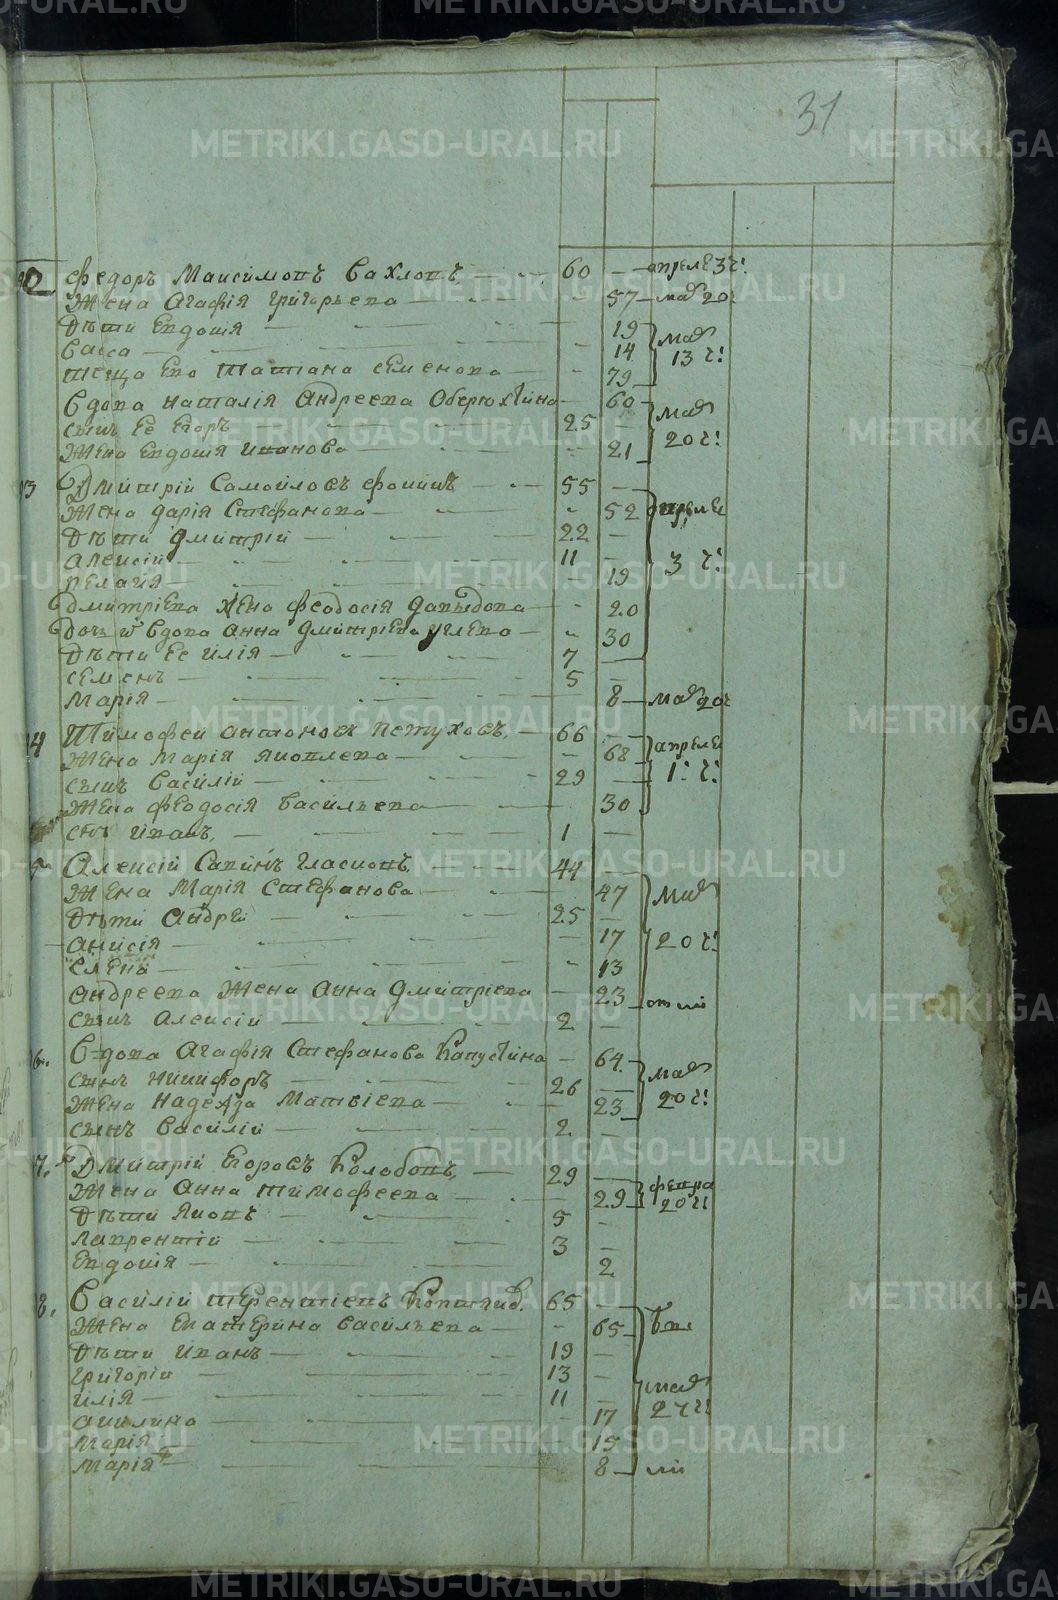 31
Федоръ Максимовъ Вахловъ 60 апреле 3 ч:
Жена Агафія Григорьева 57 маія 20
Дѣти Евдокія 19 маія
Васса 14 13 ч:
теща Ево Татіана Семенова 79
Вдова Наталія Андреева Оберюхтина 60 маія
сынъ Ее Егоръ 25 20 ч:
Жена Евдокія Иванова 21
13 Дмитрій Самойловъ Фокинъ 55
Жена Дарія Стефанова 52 апреле
Дѣти Дмитрій 22
Алексій 11 3 ч:
Пелагія 19
Дмитріева жена Феодосія Давыдова 20
Дочь Вдова Анна Дмитріева 30
Дѣти Ее Илія 7
Семенъ 5
Марія 8 маія 20 ч
14 Тимофей Антоновъ Петуховъ 66 апреле
Жена Марія Яковлева 68 1: ч:
сынъ Василій 29
Жена Феодосія Васильева 30
сынъ Иванъ 1
Алексій Савинъ 44
Жена Марія Стефанова 47 маія
Дѣти Андрей 25
Анисія 17 20 ч:
Елена 13
Андреева Жена Анна Дмитріева 23
сынъ Алексій 2
6. Вдова Агафія Стефанова Капустина 64 маія
сынъ Никифоръ 26
Жена Надежда Матвіева 23 20 ч:
сынъ Василій 2
7. Дмитрій Егоровъ Колобовъ 29
Жена Анна Тимофеева 29 февра 20 ч:
Дѣти Яковъ 5
Лаврентій 3
Евдокія 2
8. Василій Терентіевъ 65
Жена Екатерина Васильева 65
Дѣти Иванъ 19
Григорій 13
Илія 11 маія
Акилина 17
Марія 15
Марія 8
METRIKI.GASO-URAL.RU